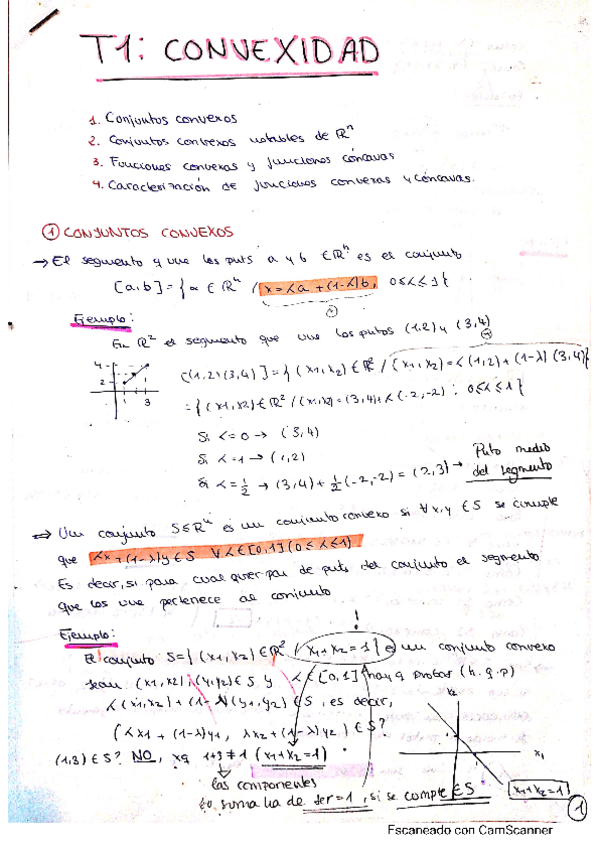 T1: CONVEXIDAD
1. Conjuntos convexos
2. Conjuntos convexos notables de ℝⁿ
3. Funciones convexas y funciones cóncavas
4. Caracterización de funciones convexas y cóncavas.
① CONJUNTOS CONVEXOS
→ El segmento q une los puts a y b ∈ ℝⁿ es el conjunto
[a,b] = { x ∈ ℝⁿ / x = λa + (1-λ)b, 0≤λ≤1 }
Ejemplo:
En ℝ² el segmento que une los putos (1,2) y (3,4)
[(1,2),(3,4)] = { (x₁,x₂) ∈ ℝ² / (x₁,x₂) = λ(1,2) + (1-λ)(3,4) }
= { (x₁,x₂) ∈ ℝ² / (x₁,x₂) = (3,4) + λ(-2,-2) : 0≤λ≤1 }
4
2
1 3
Si λ=0 → (3,4)
Si λ=1 → (1,2)
Si λ=½ → (3,4) + ½(-2,-2) = (2,3) → Puto medio del segmento
⇒ Un conjunto S⊆ℝⁿ es un conjunto convexo si ∀x,y ∈ S se cumple
que λx + (1-λ)y ∈ S ∀λ∈[0,1] (0≤λ≤1)
Es decir, si para cualquier par de puts del conjunto el segmento
que los une pertenece al conjunto
!
Ejemplo:
El conjunto S={ (x₁,x₂) ∈ ℝ² / x₁+x₂ = 1 } es un conjunto convexo
sean (x₁,x₂), (y₁,y₂) ∈ S y λ∈[0,1] hay q probar (h.q.p)
λ(x₁,x₂) + (1-λ)(y₁,y₂) ∈ S, es decir,
(λx₁ + (1-λ)y₁, λx₂ + (1-λ)y₂) ∈ S?
(1,3) ∈ S? NO, xq 1+3≠1 (x₁+x₂=1)
x₂
x₁
x₁+x₂=1
las componentes
suma ha de ser=1, si se cumple ∈ S
1
Escaneado con CamScanner